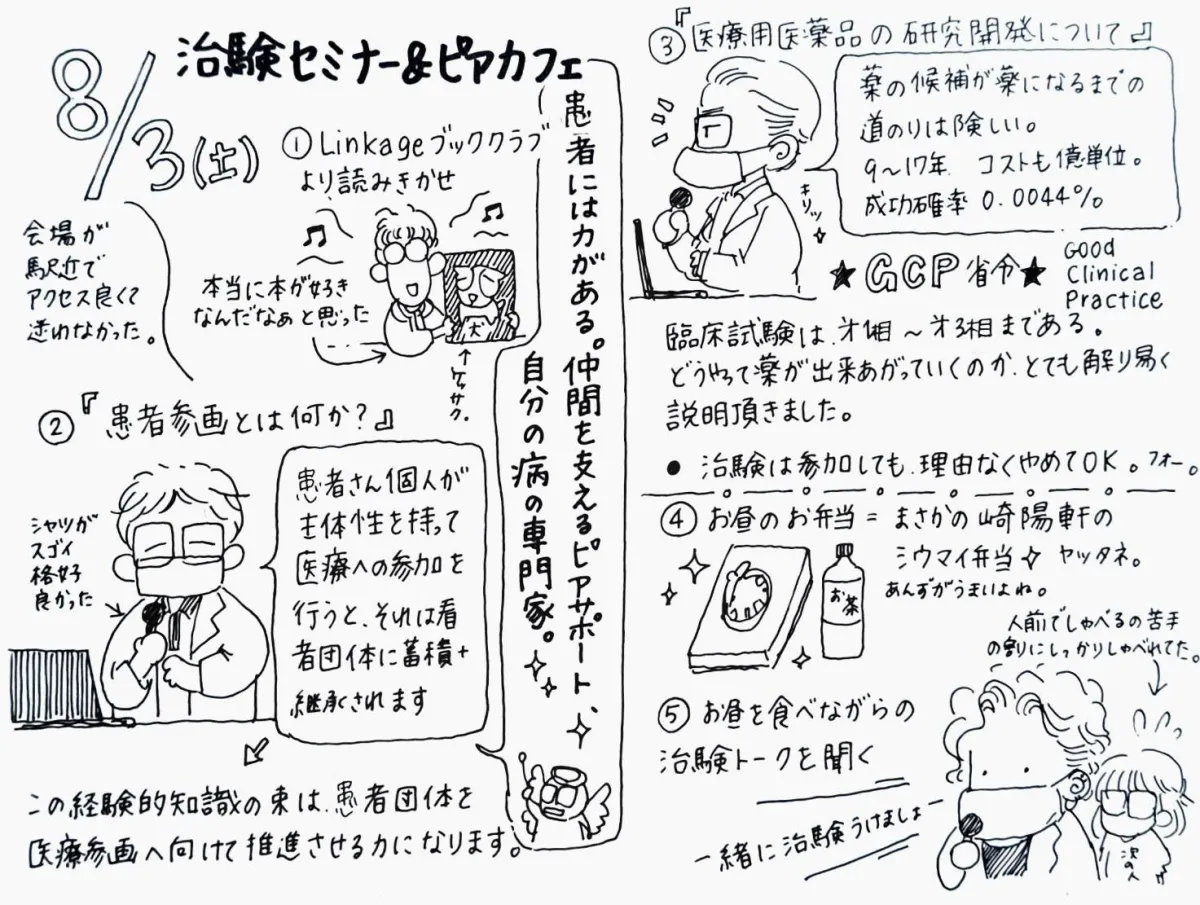 8/3(土)
治験セミナー&ピアカフェ
会場が
駅近で
アクセス良くて
迷わなかった。
① Linkageブッククラブ
より読みきかせ
本当に本が好き
なんだなぁと思った
犬
ケッサク。
患者には力がある。仲間を支えるピアサポート、
自分の病の専門家。
② 『患者参画とは何か?』
シャツが
スゴイ
格好
良かった
患者さん個人が
主体性を持って
医療への参加を
行うと、それは看
者団体に蓄積+
継承されます
この経験的知識の束は、患者団体を
医療参画へ向けて推進させる力になります。
③ 『医療用医薬品の研究開発について』
薬の候補が薬になるまでの
道のりは険しい。
9〜17年 コストも億単位。
成功確率 0.0044%
キリッ
★GCP省令★
Good
Clinical
Practice
臨床試験は、才1相〜才3相まである。
どうやって薬が出来あがっていくのか、とても解り易く
説明頂きました。
● 治験は参加しても、理由なくやめてOK。フォー。
④ お昼のお弁当=まさかの崎陽軒の
シウマイ弁当✧ ヤッタネ。
あんずがうまいよね。
お茶
人前でしゃべるの苦手
の割にしっかりしゃべれてた。
⑤ お昼を食べながらの
治験トークを聞く
一緒に治験うけましょー
次の人